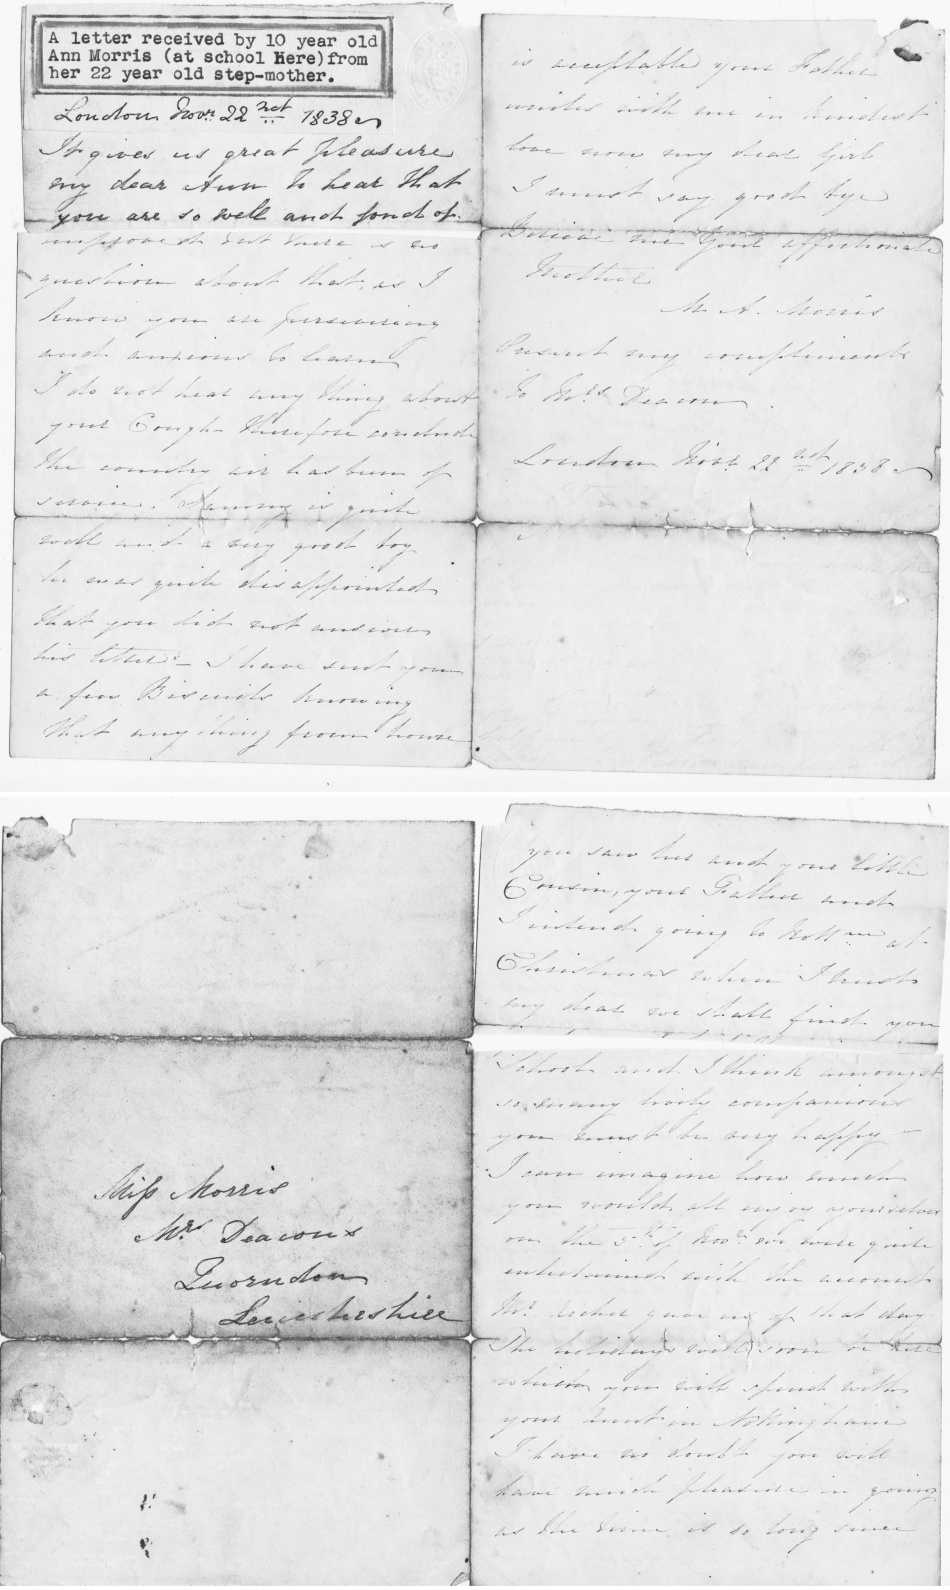 A letter received by 10 year old
Ann Morris (at school Here) from
her 22 year old step-mother.
London Novr. 22 nd 1838
It gives us great pleasure
my dear Ann to hear that
you are so well and fond of
improved but there is no
question about that, as I
know you are persevering
and anxious to learn
I do not hear any thing about
your Cough therefore conclude
the country air has been of
service. Sammy is quite
well and a very good boy
he was quite disappointed
that you did not answer
his letter - I have sent you
a few Biscuits knowing
that any thing from home
is acceptable your Father
unites with me in kindest
love now my dear Girl
I must say good bye
Believe me Your affectionate
Mother
M. A. Morris
Present my compliments
To Mrs Deacon.
London Novr. 22 nd 1838
you saw her and your little
Cousin, your Father and
I intend going to Nottm at
Christmas when I trust
my dear we shall find you
School and I think amongst
so many lively companions
you must be very happy -
I can imagine how much
you would all enjoy yourselves
on the 5th of Novr. we were quite
entertained with the account
Mr. gave us of that day
The holidays will soon be here
which you will spend with
your Aunt in Nottingham
I have no doubt you will
have much pleasure in going
as the time is so long since
Miss Morris
Mrs. Deacons
Quorndon
Leicestershire